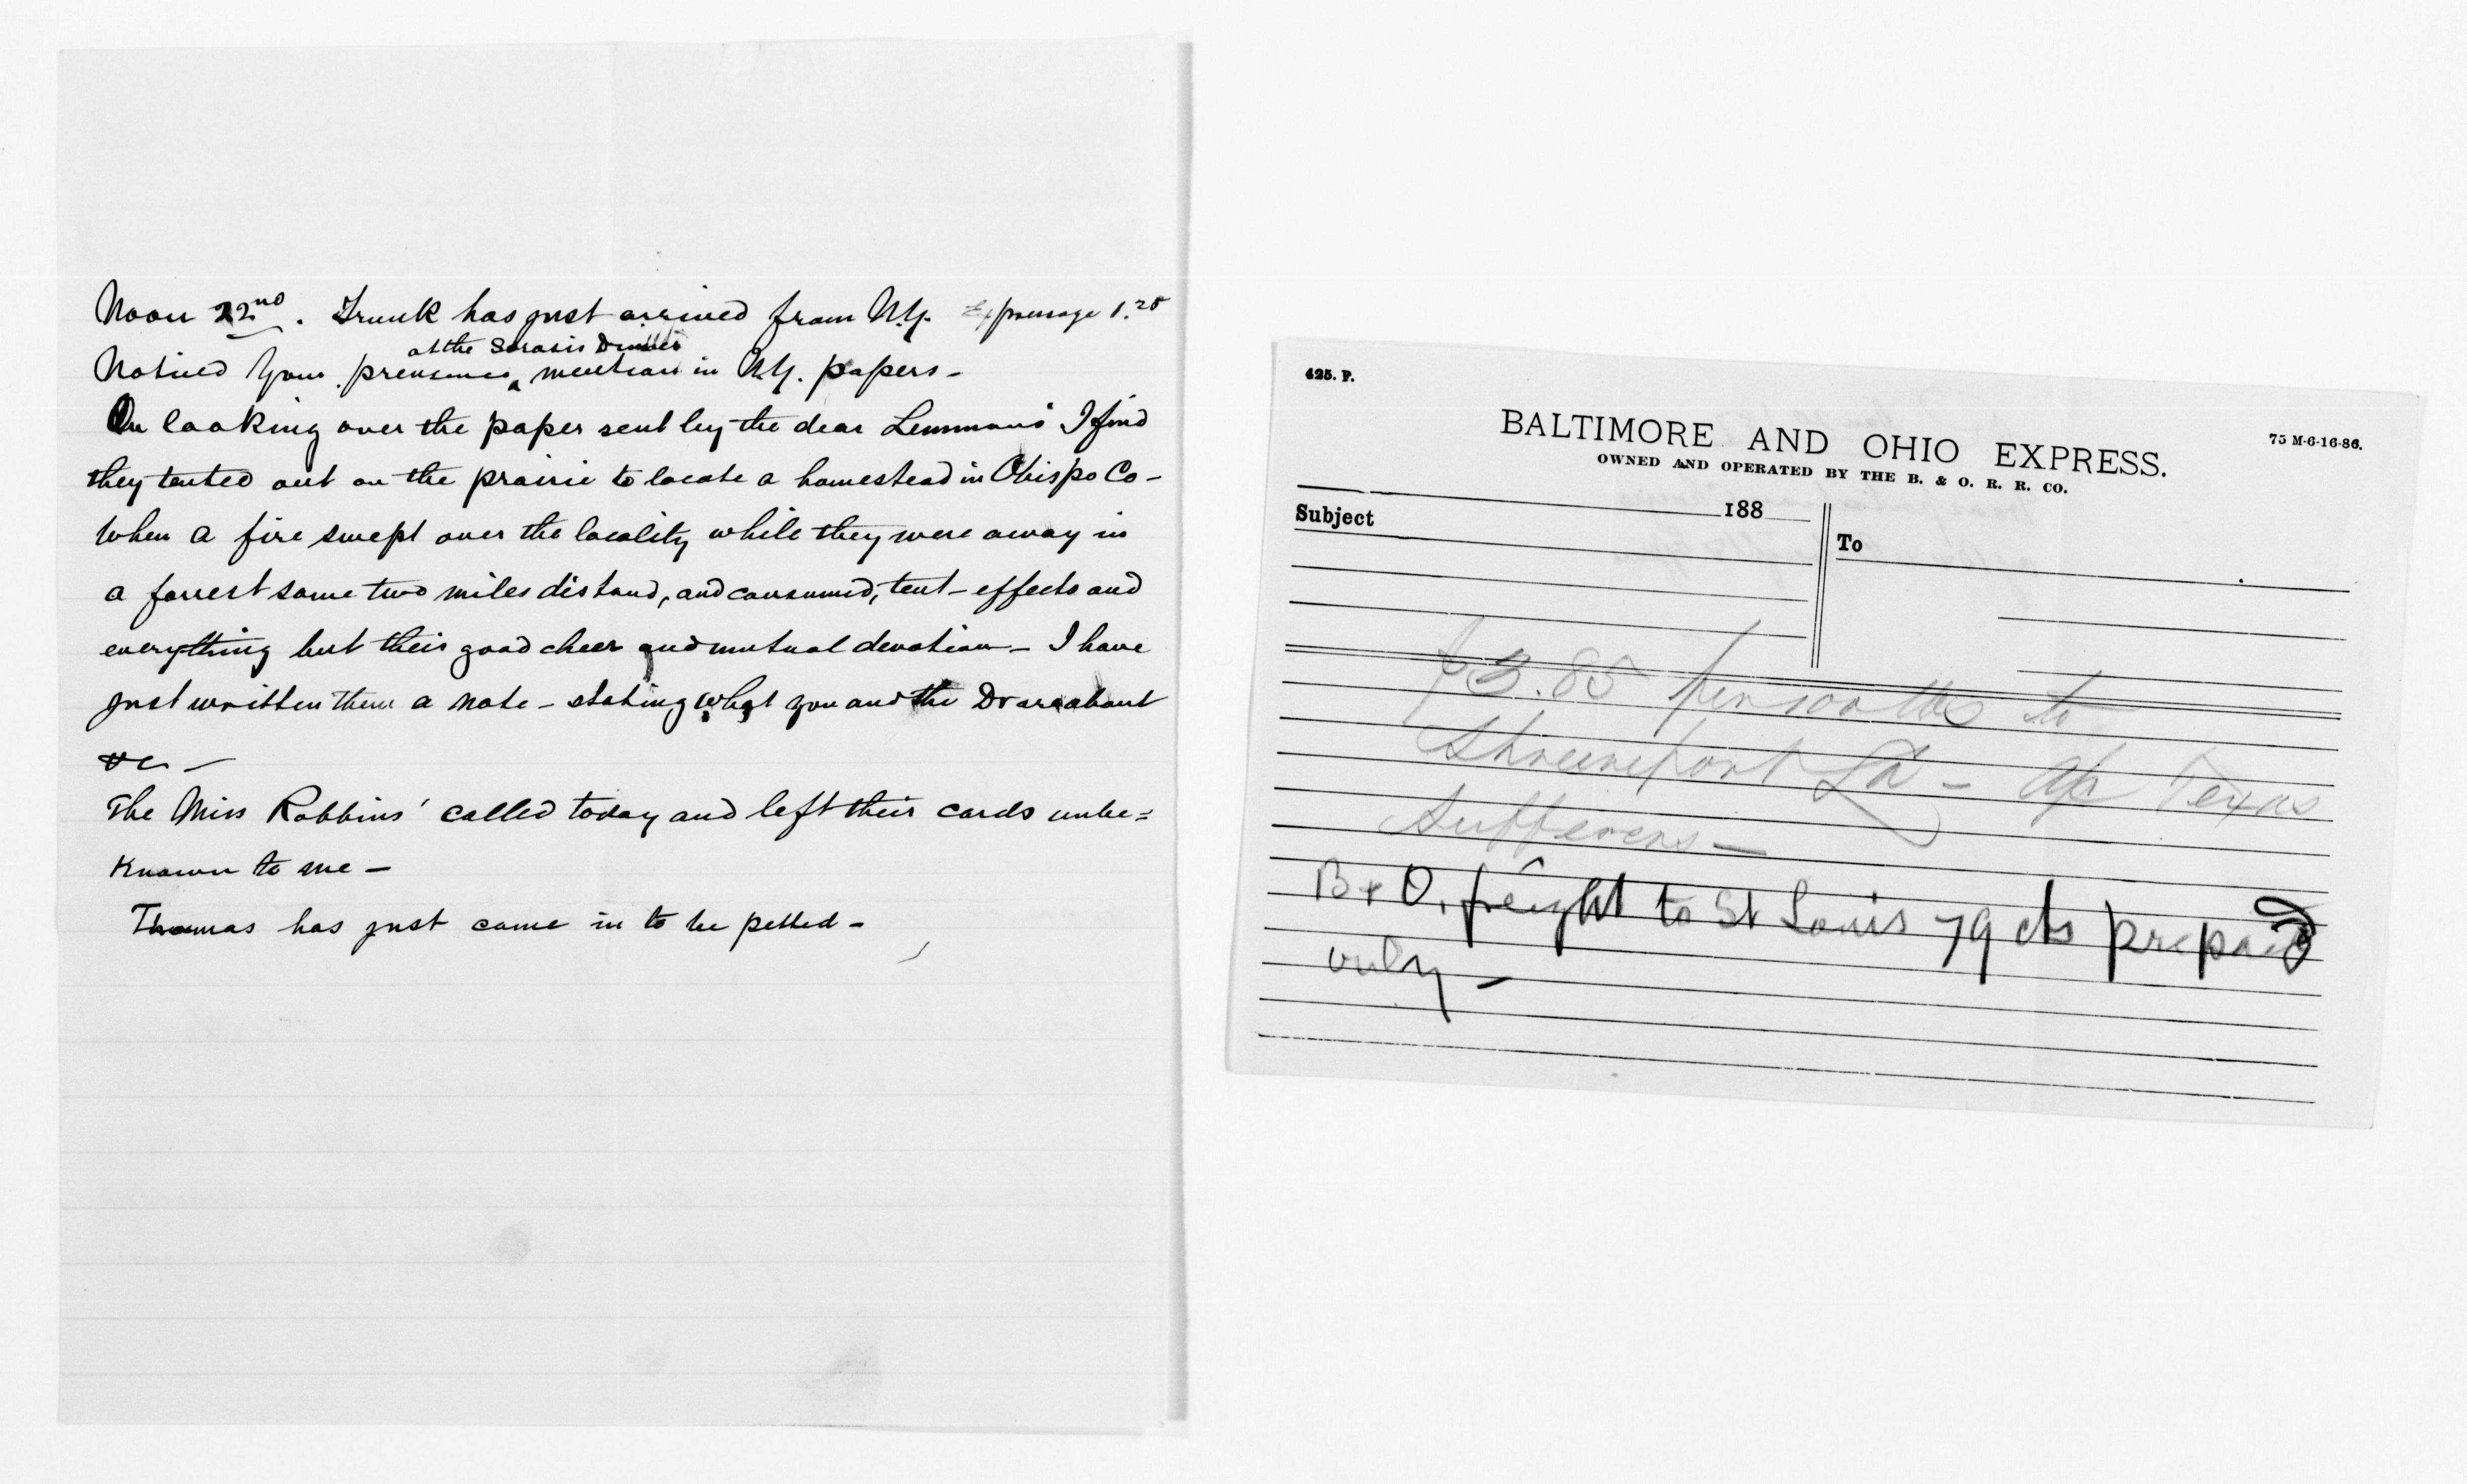 Noon 22nd. Trunk has just arrived from N.Y. Expressage 1.20
at the Sorosis Dinner
Noticed your presence mention in N.Y. papers -
On looking over the paper sent by the dear Lemmons I find
they tented out on the prairie to locate a homestead in Obispo Co -
When a fire swept over the locality while they were away in
a forrest some two miles distand, and consumed, tent - effects and
everything but their good cheer and mutual devotion - I have
just written them a note - stating what you and the Dr are about
&c -
The Miss Robbins' called today and left their cards unbe=
known to me -
Thomas has just come in to be petted -
425. P.
75 M-6-16-86.
BALTIMORE AND OHIO EXPRESS.
OWNED AND OPERATED BY THE B. & O. R. R. CO.
188
Subject
To
$3.85 per 100 lbs to
Shreveport La - Texas
Sufferers -
B + O. freight to St Louis 79 cts prepaid
only -